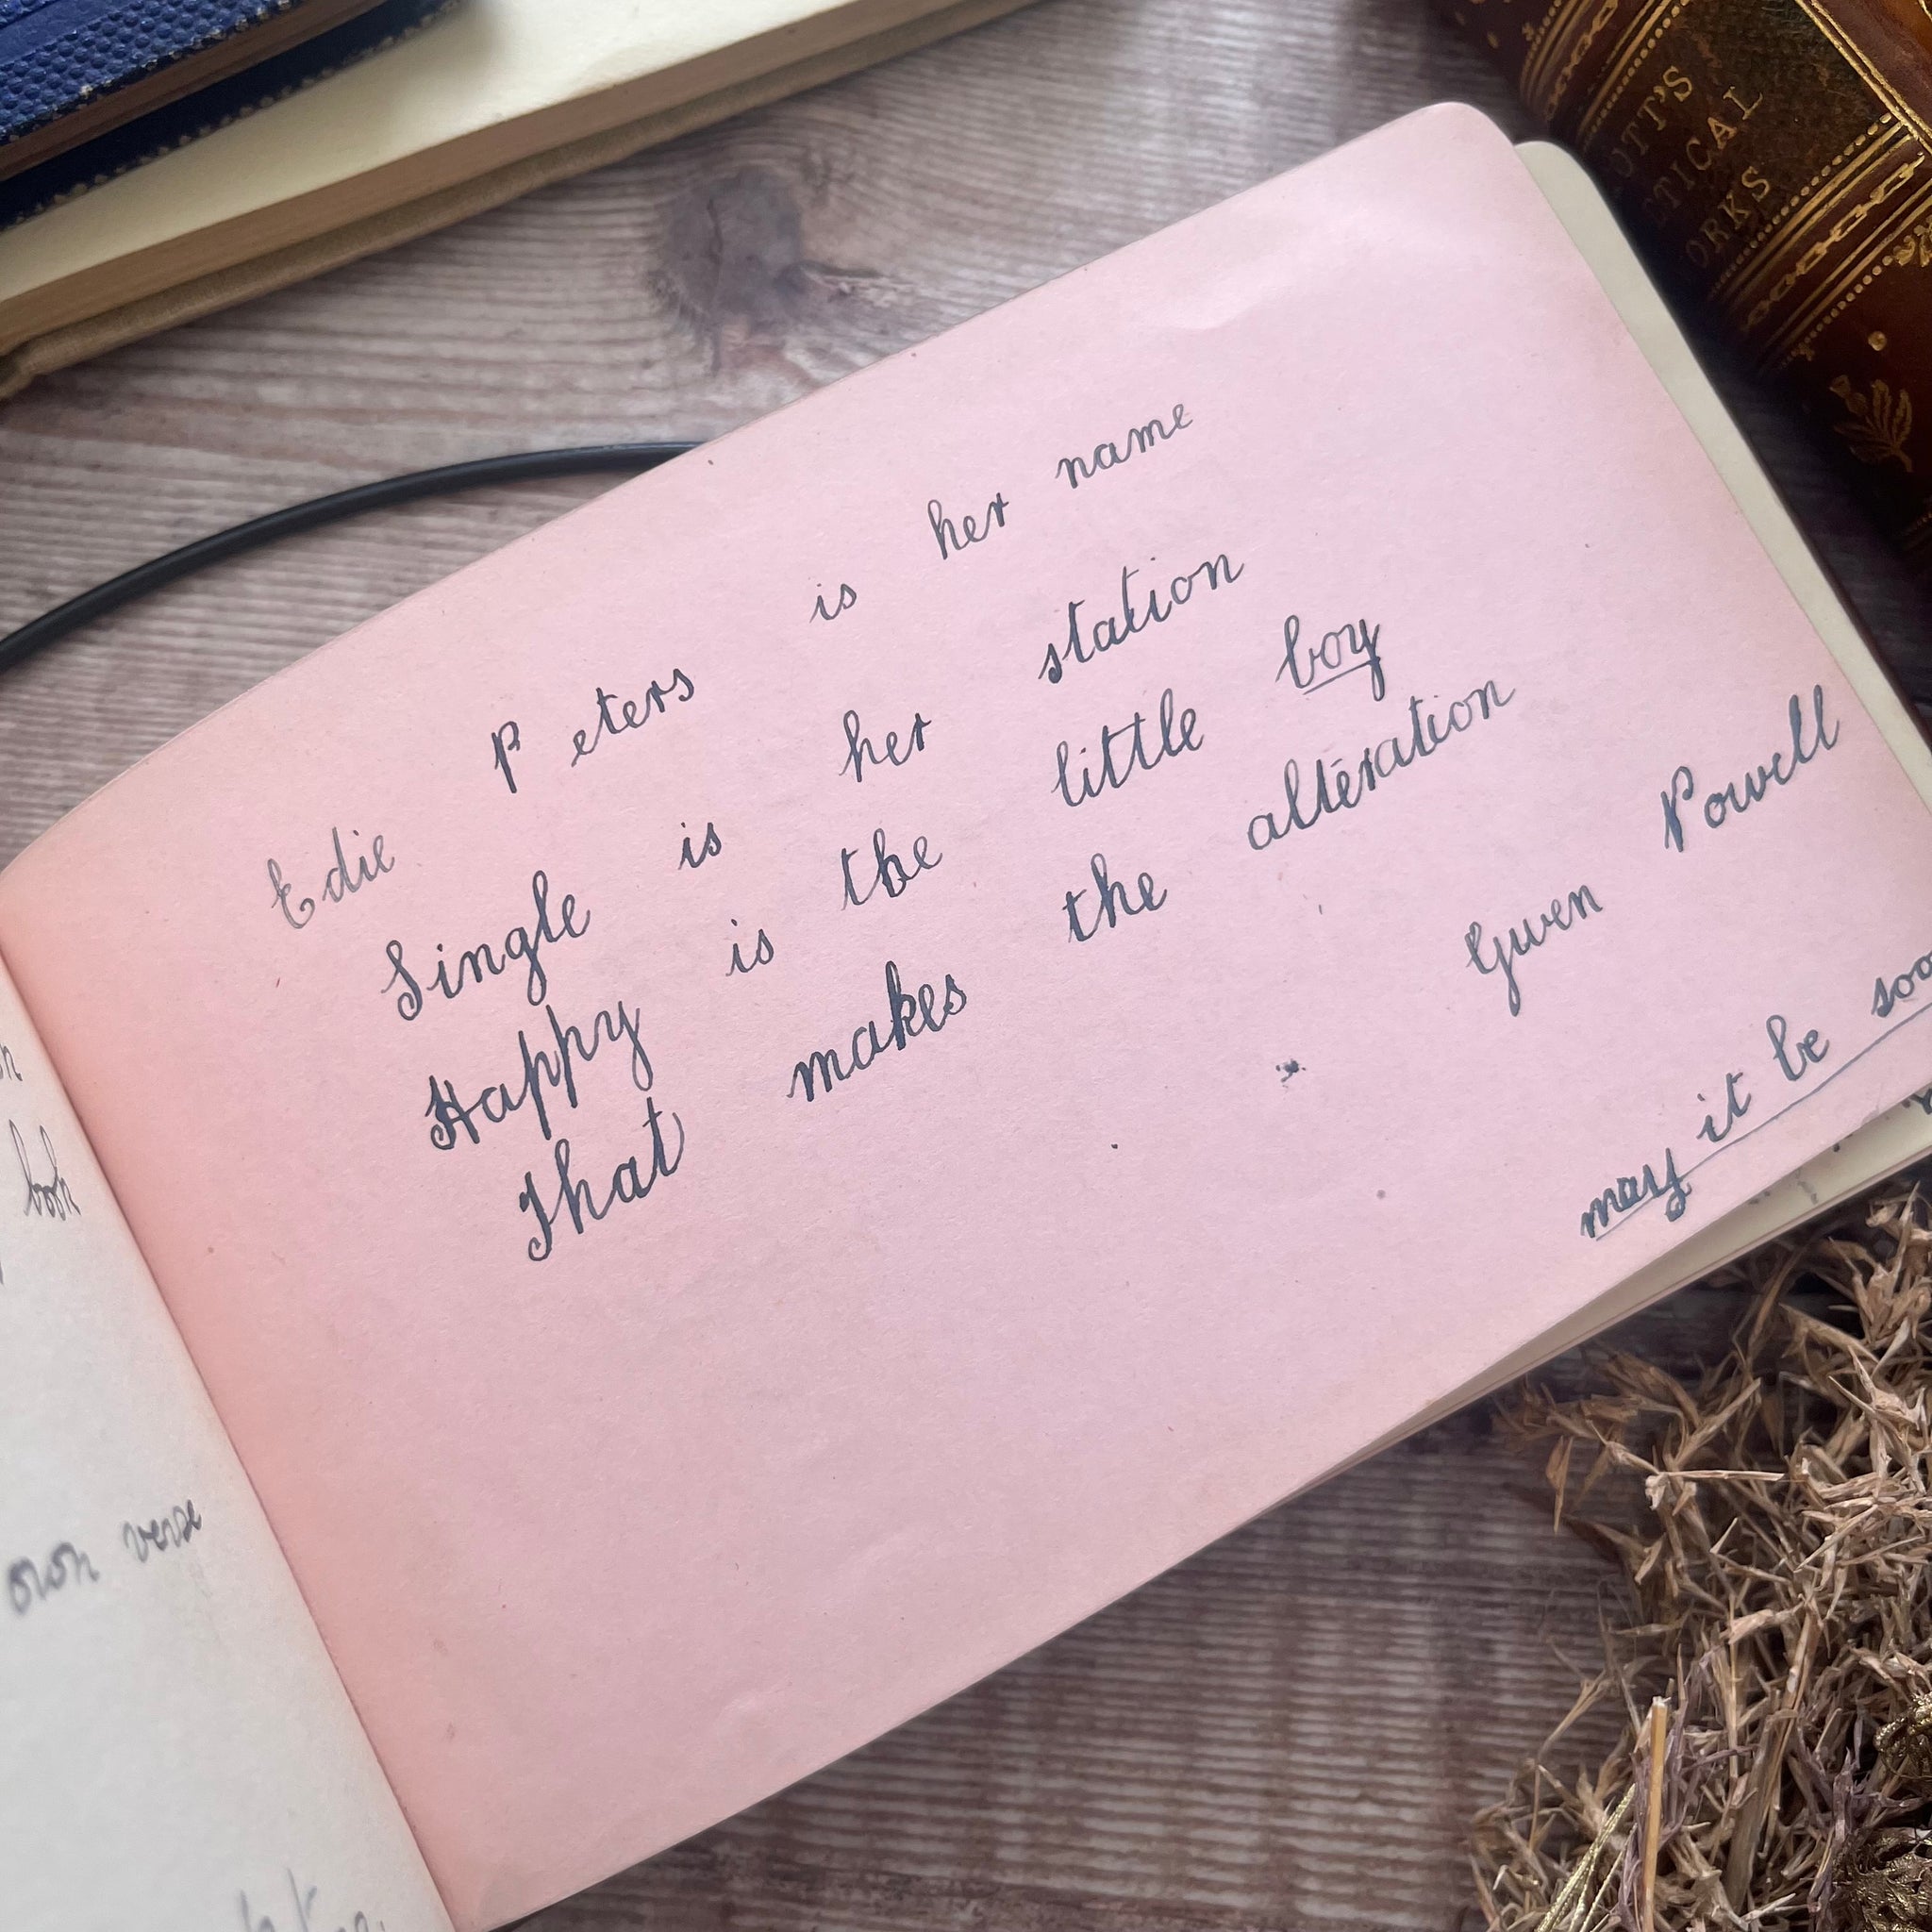 Edie Peters is her name
Single is her station
Happy is the little boy
That makes the alteration
Gwen Powell
may it be
book
own verse